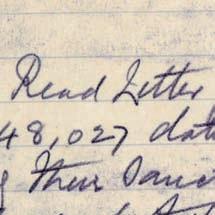 Read Letter
48,027 dat
g their Sanc